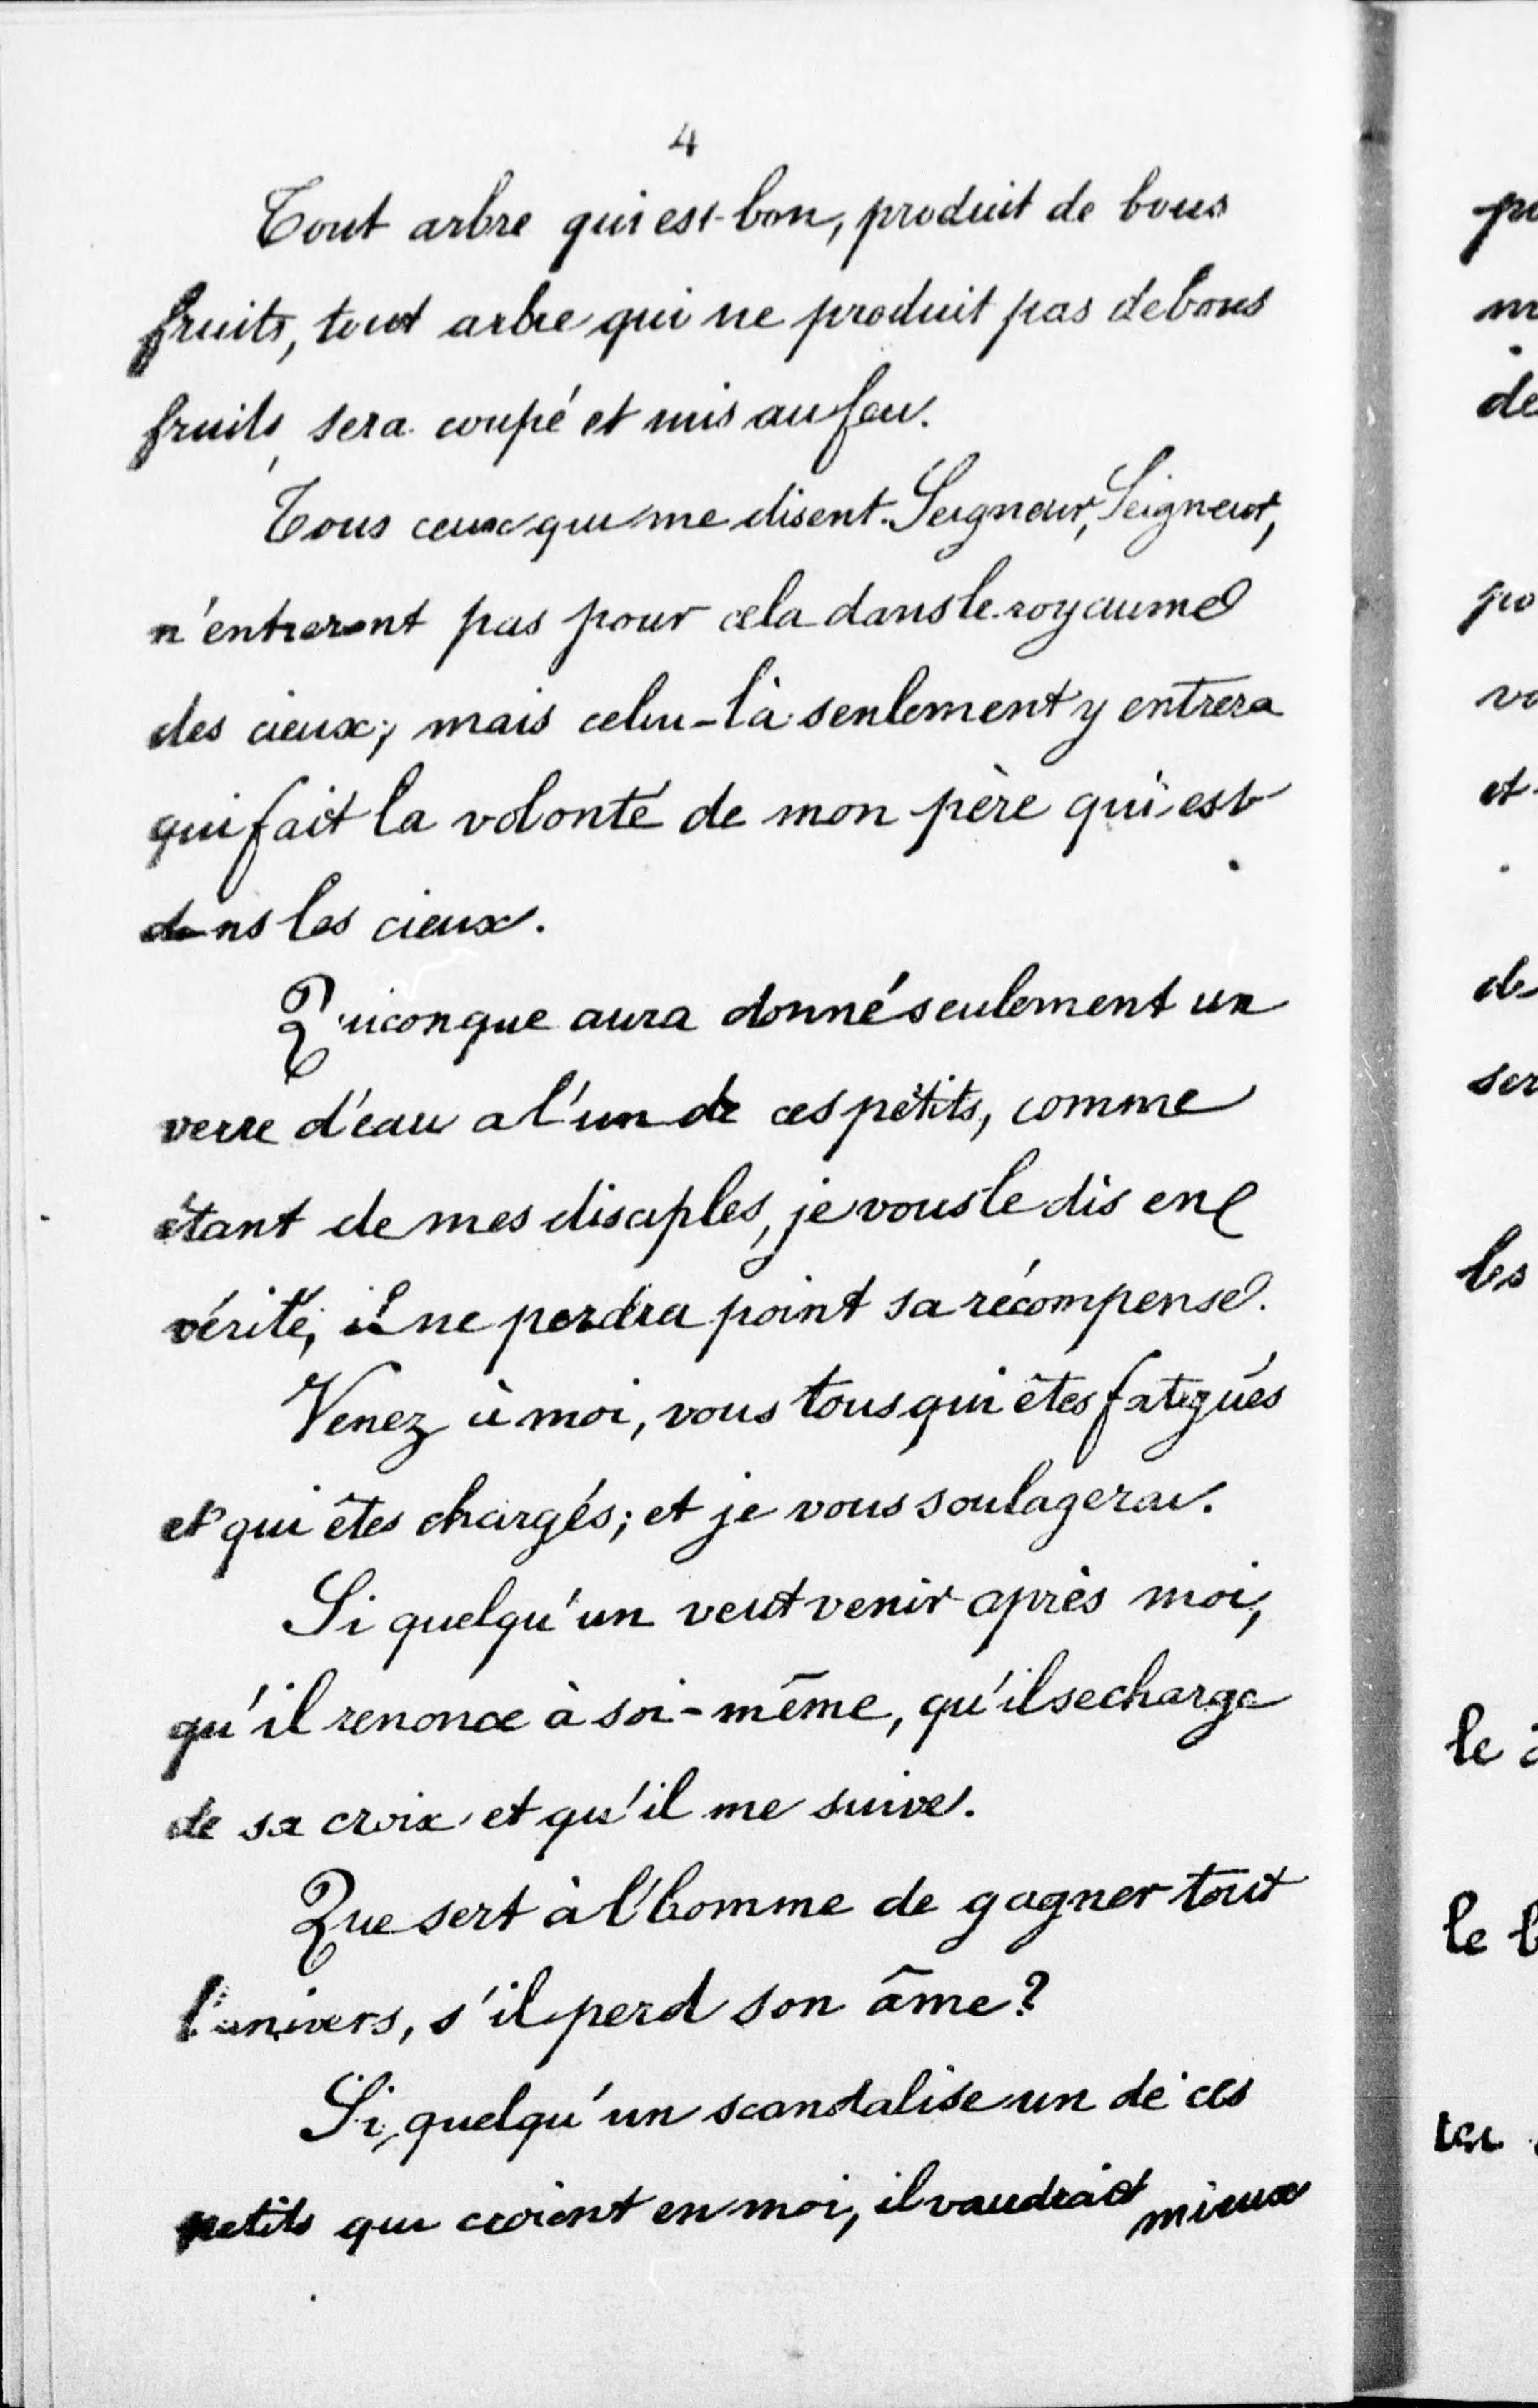 4
Tout arbre qui est bon, produit de bons
fruits, tout arbre qui ne produit pas de bons
fruits, sera coupé et mis au feu.
Tous ceux qui me disent Seigneur, Seigneur,
n'entreront pas pour cela dans le royaume
des cieux; mais celui-là seulement y entrera
qui fait la volonté de mon père qui est
dans les cieux.
Quiconque aura donné seulement un
verre d'eau a l'un de ces petits, comme
étant de mes disciples, je vous le dis en
vérité, il ne perdra point sa récompense.
Venez à moi, vous tous qui êtes fatigués
et qui êtes chargés; et je vous soulagerai.
Si quelqu'un veut venir après moi,
qu'il renonce à soi-même, qu'il se charge
de sa croix et qu'il me suive.
Que sert à l'homme de gagner tout
l'univers, s'il perd son âme?
Si quelqu'un scandalise un de ces
petits qui croient en moi, il vaudrait mieux
de
et
de
les
le
le